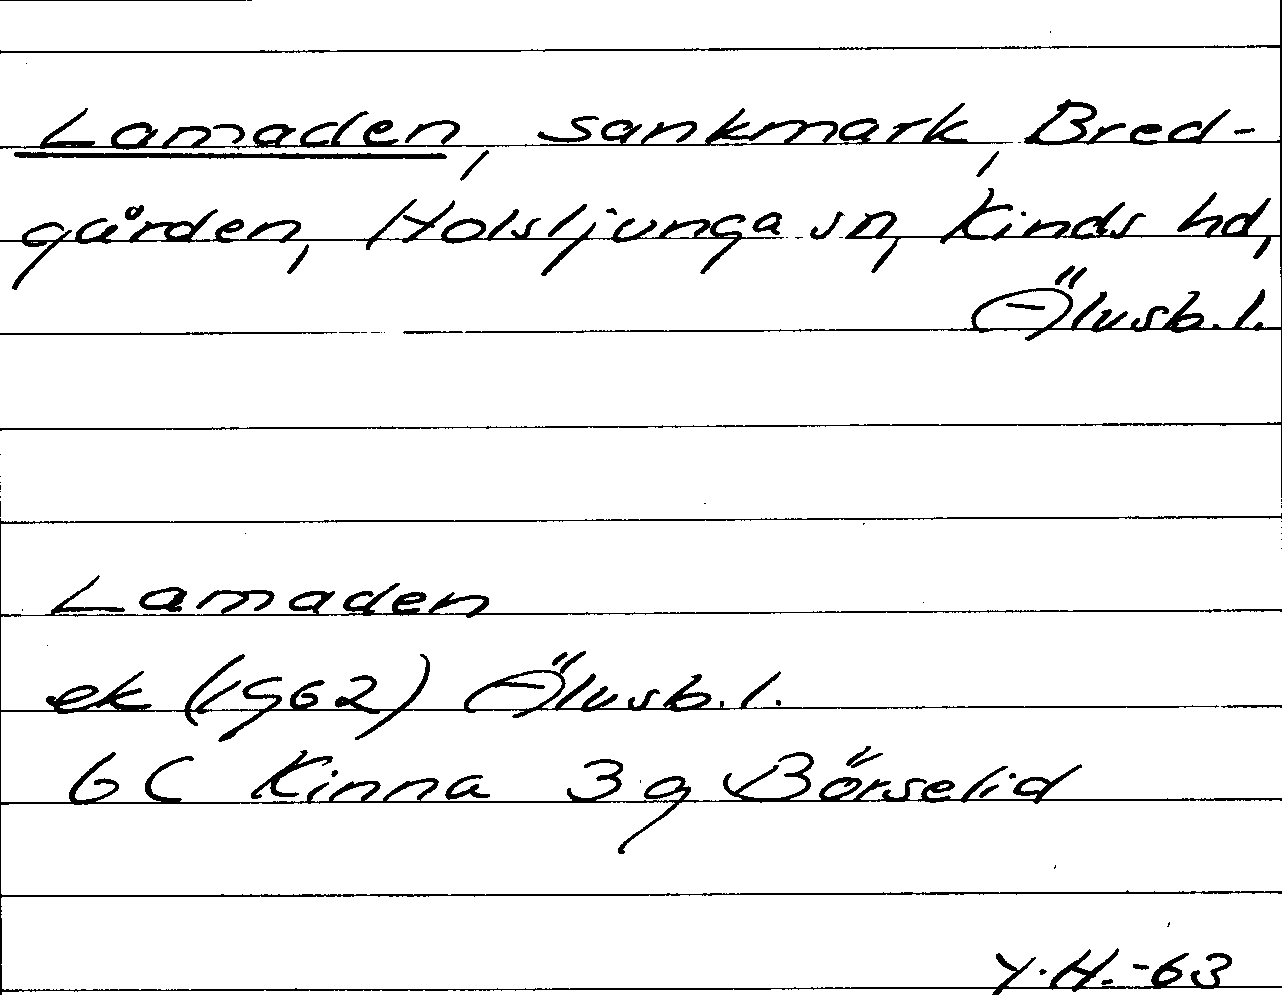 Lamaden, sankmark, Bred-
gården, Holsljunga sn, Kinds hd,
Älvsb. l.
Lamaden
ek (1962) Älvsb. l.
6 C Kinna 3 g Börselid
Y. H. -63